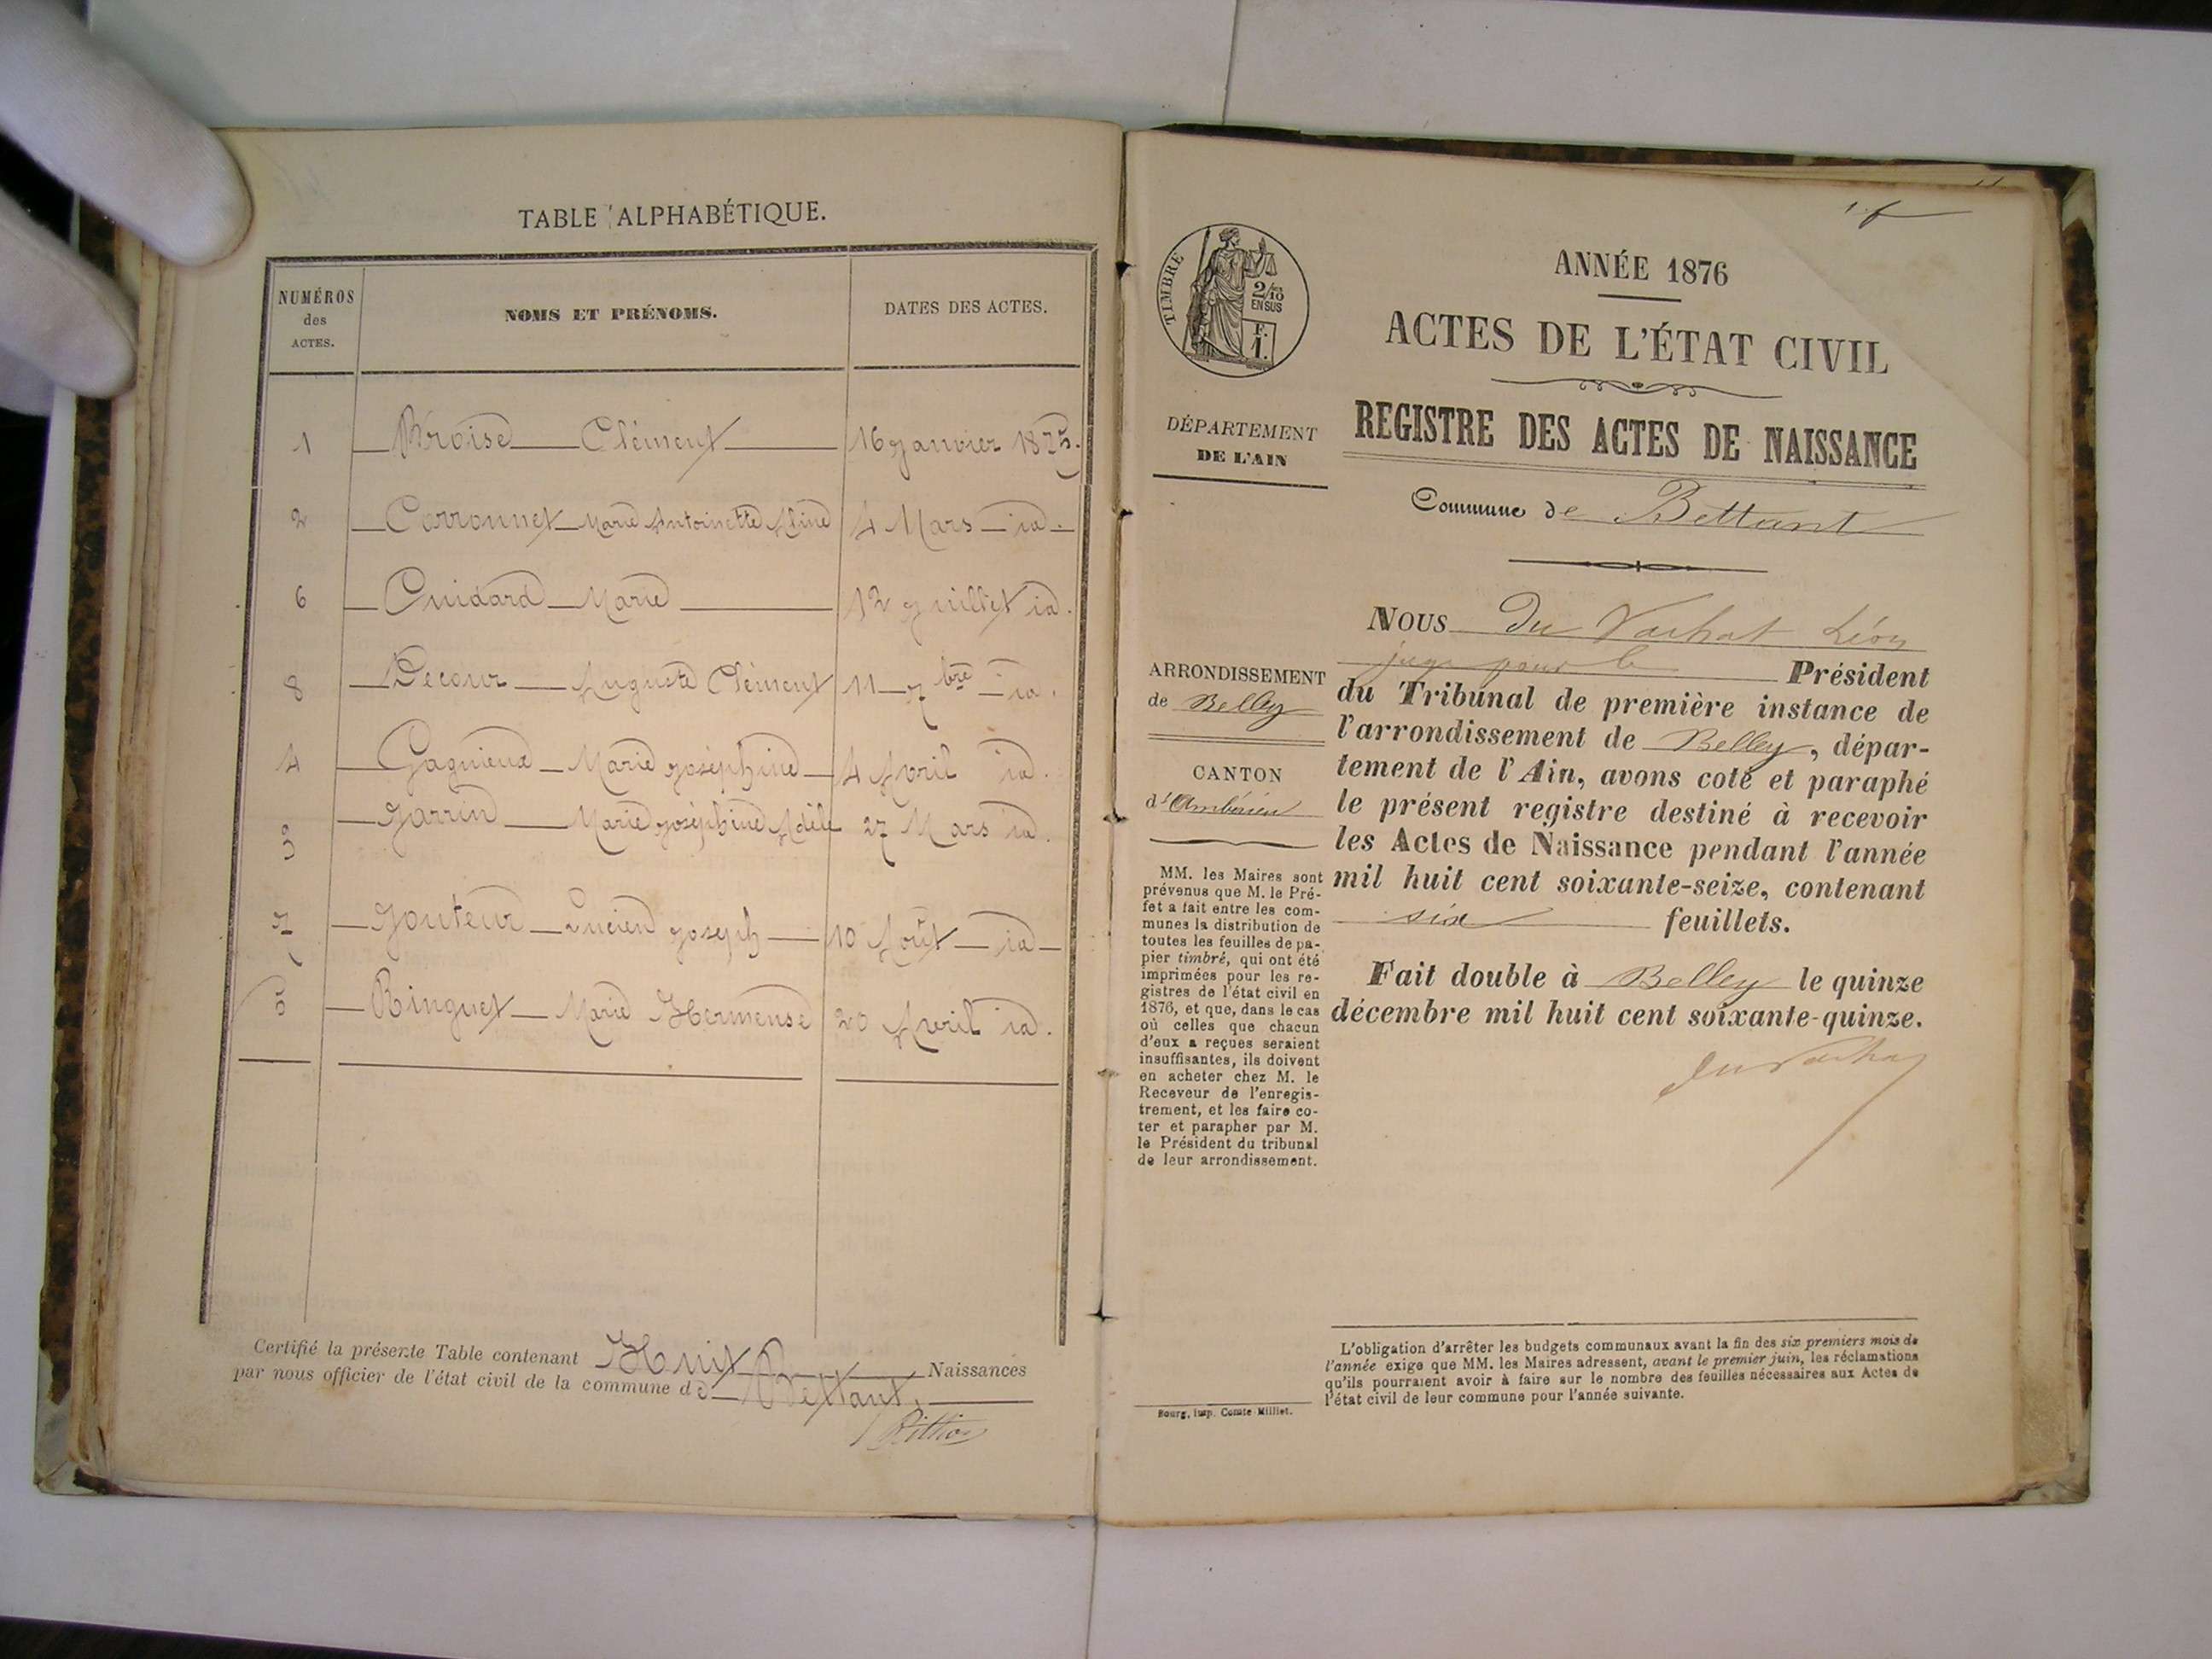 TABLE ALPHABÉTIQUE.
NUMÉROS des ACTES.
NOMS ET PRÉNOMS.
DATES DES ACTES.
1 Broise Clément 16 janvier 1875.
2 Corronnet Marie Antoinette Aline 4 Mars id.
6 Cuidard Marie 12 juillet id.
8 Decour Auguste Clément 11 7bre id.
4 Gagnieux Marie joséphine 4 Avril id.
3 Jarrin Marie joséphine Adèle 27 Mars id.
7 Jouteur Lucien joseph 10 Août id
5 Ringuet Marie Hermense 20 Avril id.
Certifié la présente Table contenant Huit Naissances
par nous officier de l'état civil de la commune de Bettant.
1. f
TIMBRE
2/10
EN SUS
F.
1.
ANNÉE 1876
ACTES DE L'ÉTAT CIVIL
REGISTRE DES ACTES DE NAISSANCE
Commune de Bettant
DÉPARTEMENT
DE L'AIN
ARRONDISSEMENT
de Belley
CANTON
d'Ambérieu
MM. les Maires sont
prévenus que M. le Pré-
fet a fait entre les com-
munes la distribution de
toutes les feuilles de pa-
pier timbré, qui ont été
imprimées pour les re-
gistres de l'état civil en
1876, et que, dans le cas
où celles que chacun
d'eux a reçues seraient
insuffisantes, ils doivent
en acheter chez M. le
Receveur de l'enregis-
trement, et les faire co-
ter et parapher par M.
le Président du tribunal
de leur arrondissement.
Bourg, imp. Comte-Milliet.
NOUS Du Vachat Léon
juge pour le Président
du Tribunal de première instance de
l'arrondissement de Belley, dépar-
tement de l'Ain, avons coté et paraphé
le présent registre destiné à recevoir
les Actes de Naissance pendant l'année
mil huit cent soixante-seize, contenant
six feuillets.
Fait double à Belley le quinze
décembre mil huit cent soixante-quinze.
du Vachat
L'obligation d'arrêter les budgets communaux avant la fin des six premiers mois de
l'année exige que MM. les Maires adressent, avant le premier juin, les réclamations
qu'ils pourraient avoir à faire sur le nombre des feuilles nécessaires aux Actes de
l'état civil de leur commune pour l'année suivante.